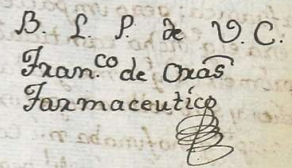 B. L. P. de V. C.
Fran.co de Oxas
Farmaceutico